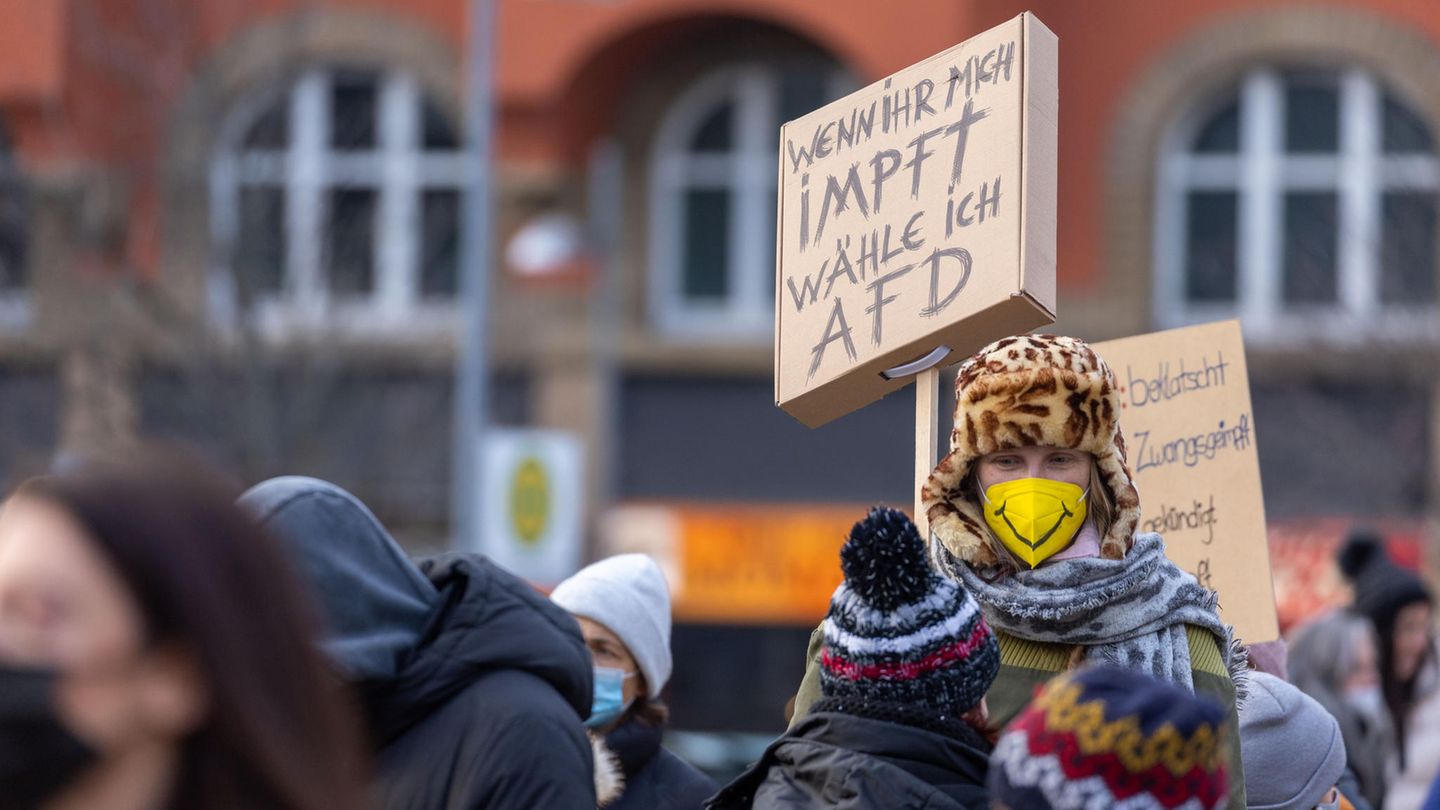 WENN iHR MiCH
iMPFT
WÄHLE iCH
AFD
: beklatscht
Zwangsgeimpft
gekündigt